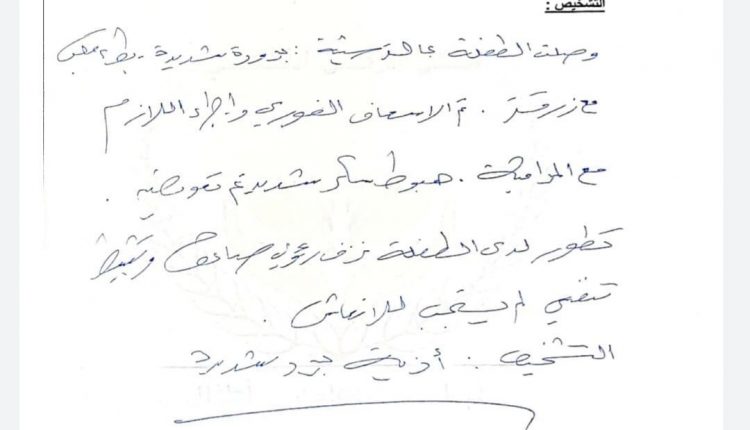 التشخيص :
وصلت الطفلة بحالة سيئة : برودة شديدة . بطء قلب
مع زرقة . تم الاسعاف الفوري واجراء اللازم
مع المراقبة . هبوط سكر شديد تم تعويضه .
تطور لدى الطفلة نزف رئوي صاعق وتثبيط
تنفسي لم يستجب للانعاش .
التشخيص : أذية برد شديدة